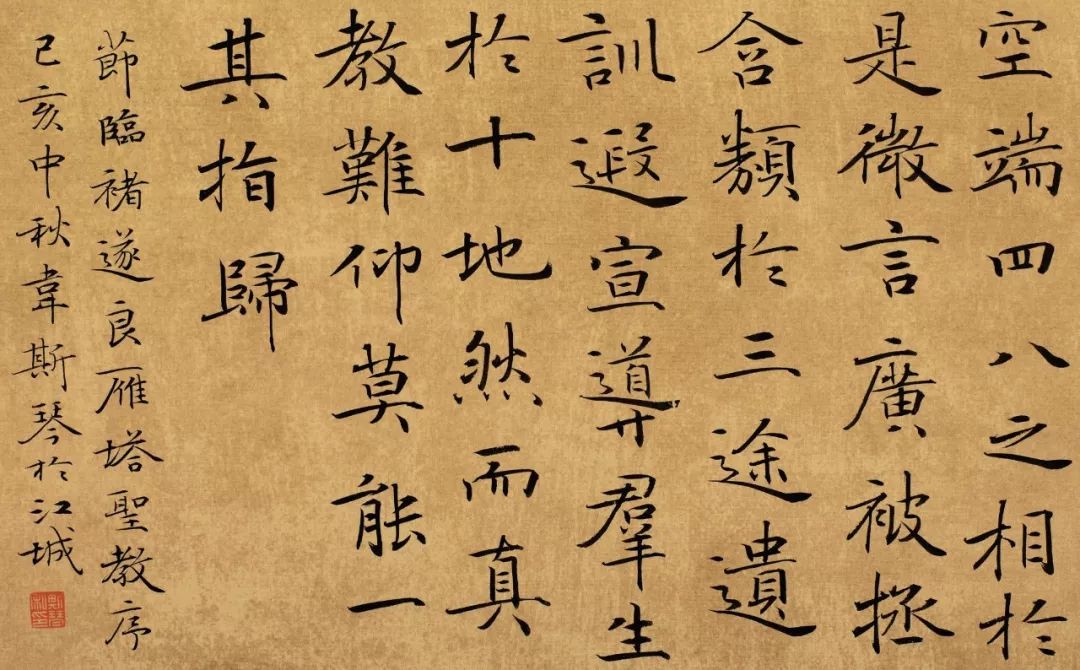 空端四八之相於
是微言廣被拯
含類於三途遺
訓遐宣導群生
於十地然而真
教難仰莫能一
其指歸
節臨褚遂良雁塔聖教序
己亥中秋韋斯琴於江城